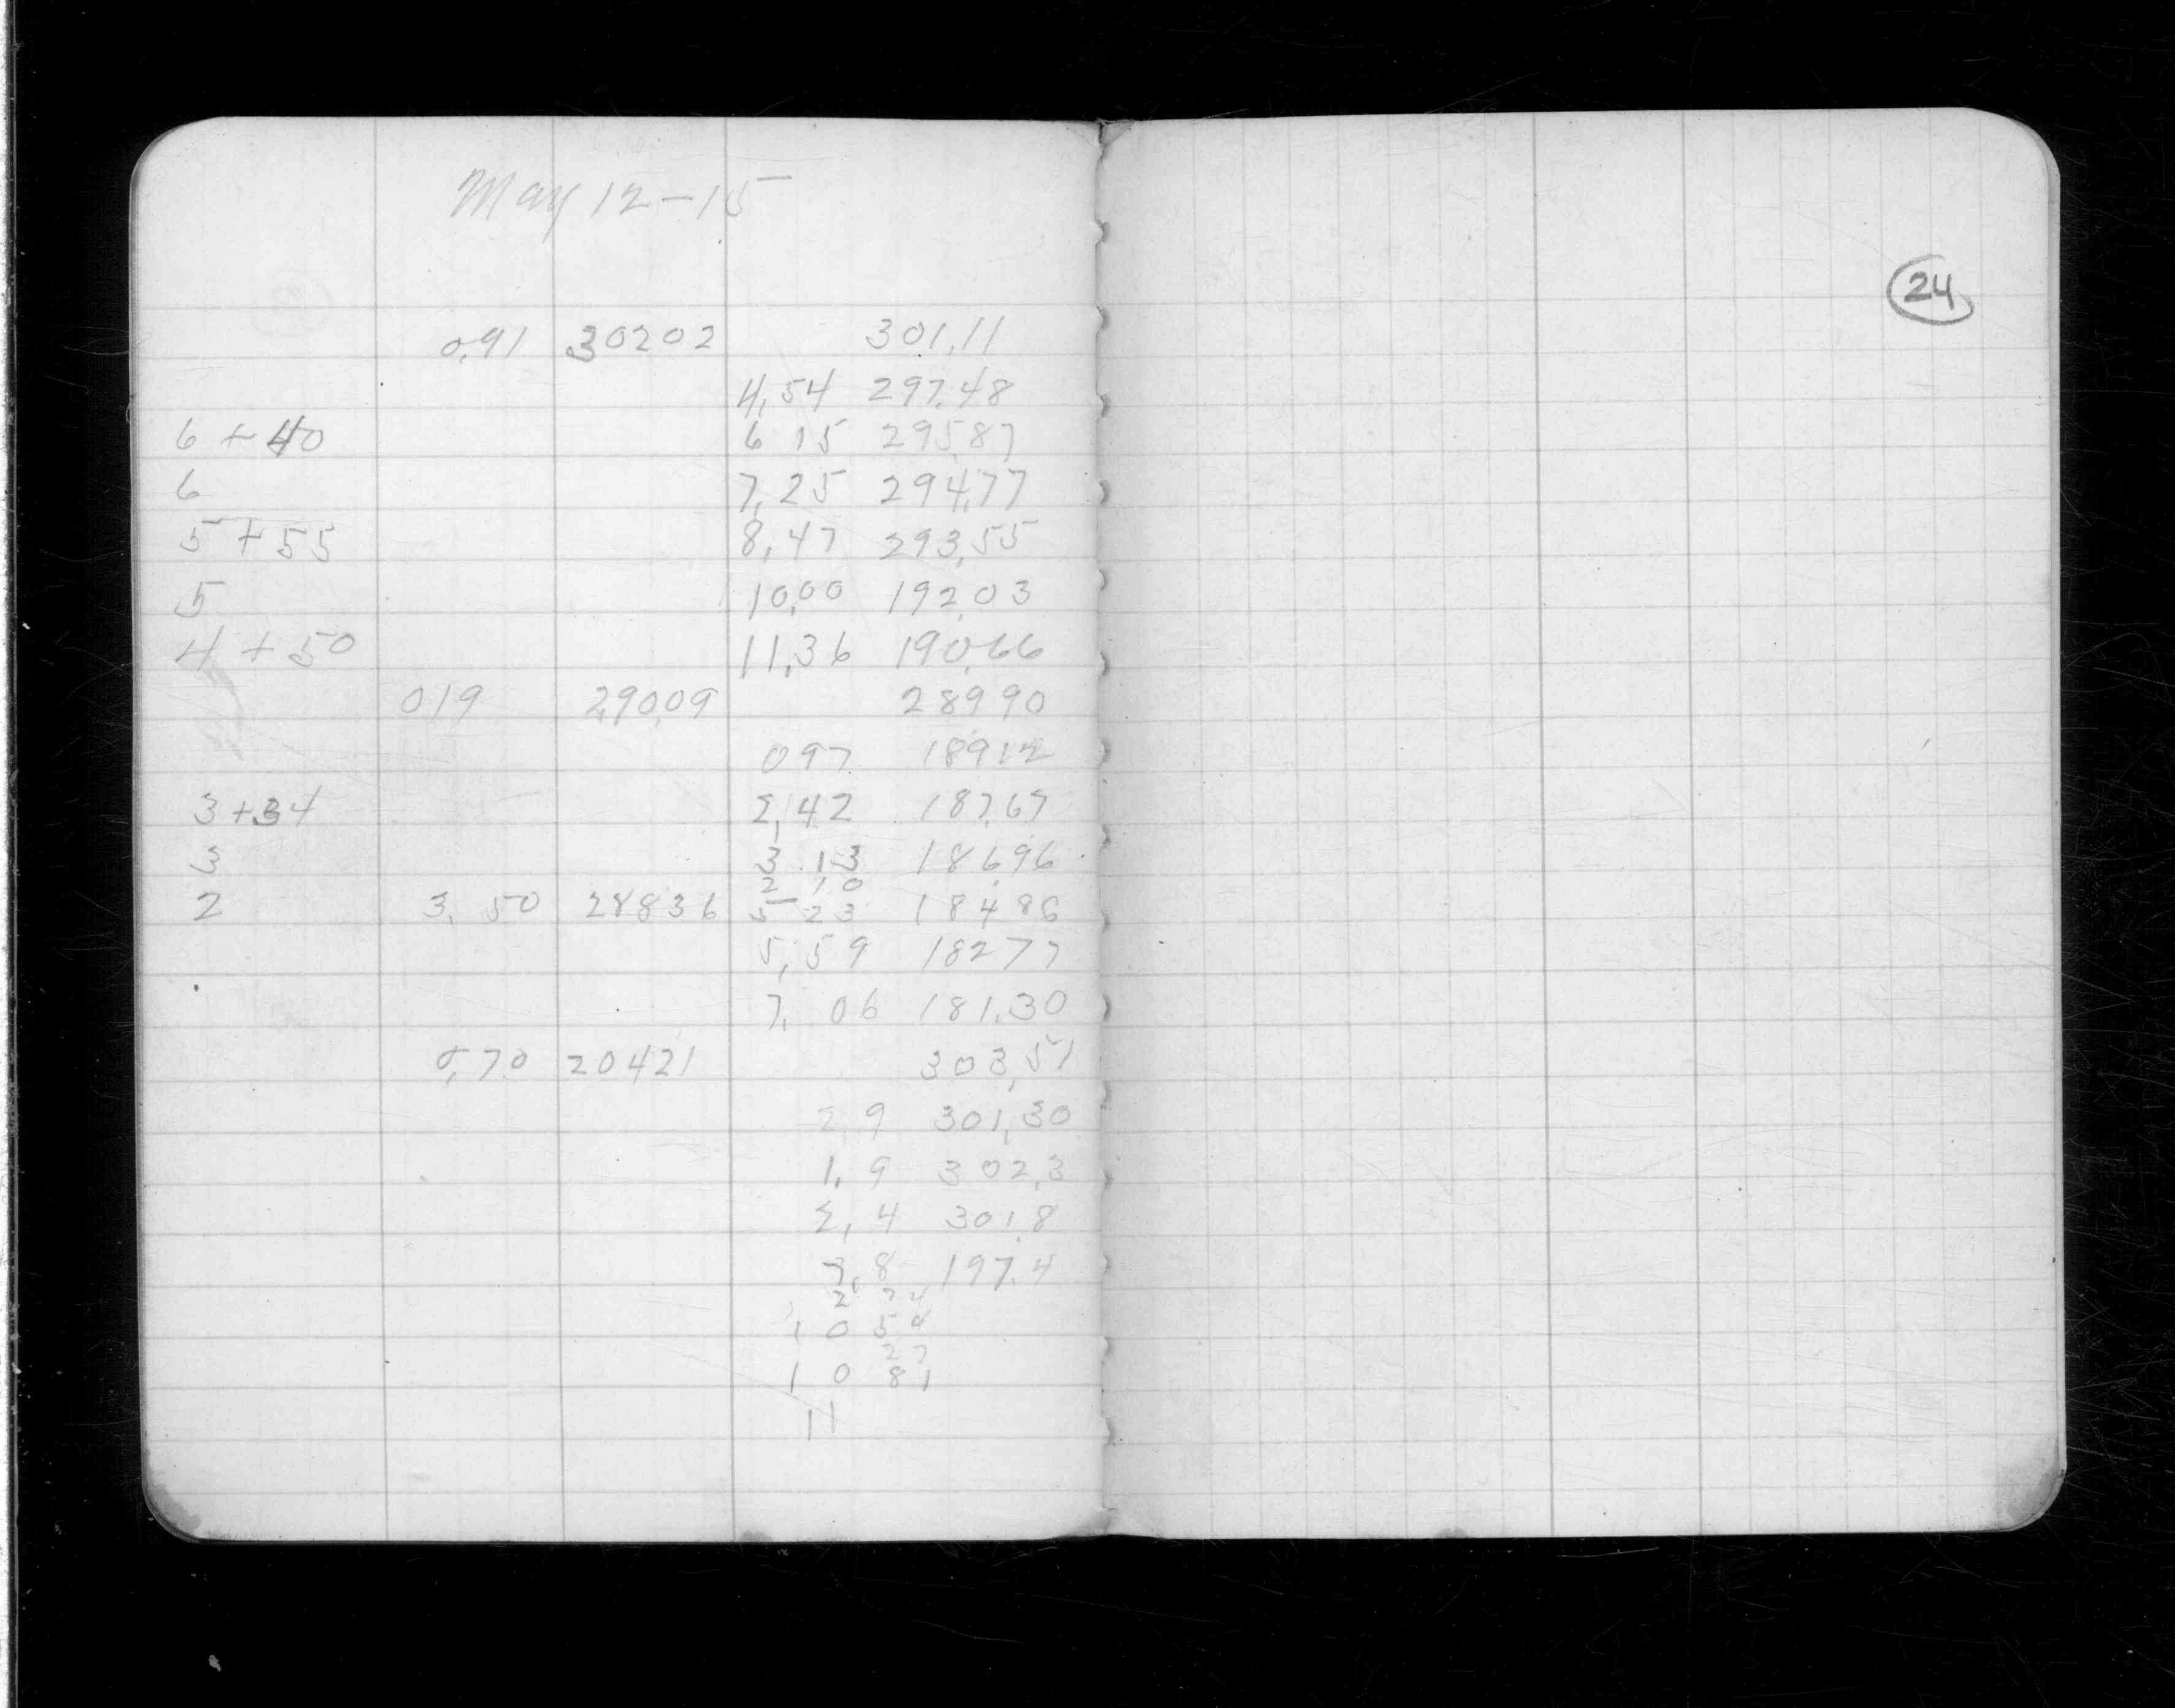 May 12-15
24
0,91 30202 301,11
4,54 297.48
6 + 40 6 15 295,87
6 7,25 294,77
5 + 55 8,47 293,55
5 10,00 192,03
4 + 50 11,36 190,66
019 290,09 28990
097 18912
3 + 34 2,42 187,67
3 3.13 186,96
2 10
2 3. 50 28836 5 23 18486
5,59 18277
7. 06 181.30
0,70 20421 303,51
2,9 301,30
1.9 302,3
2,4 301,8
7,8 197.4
2 74
1 0 5 4
27
1 0 8 1
11